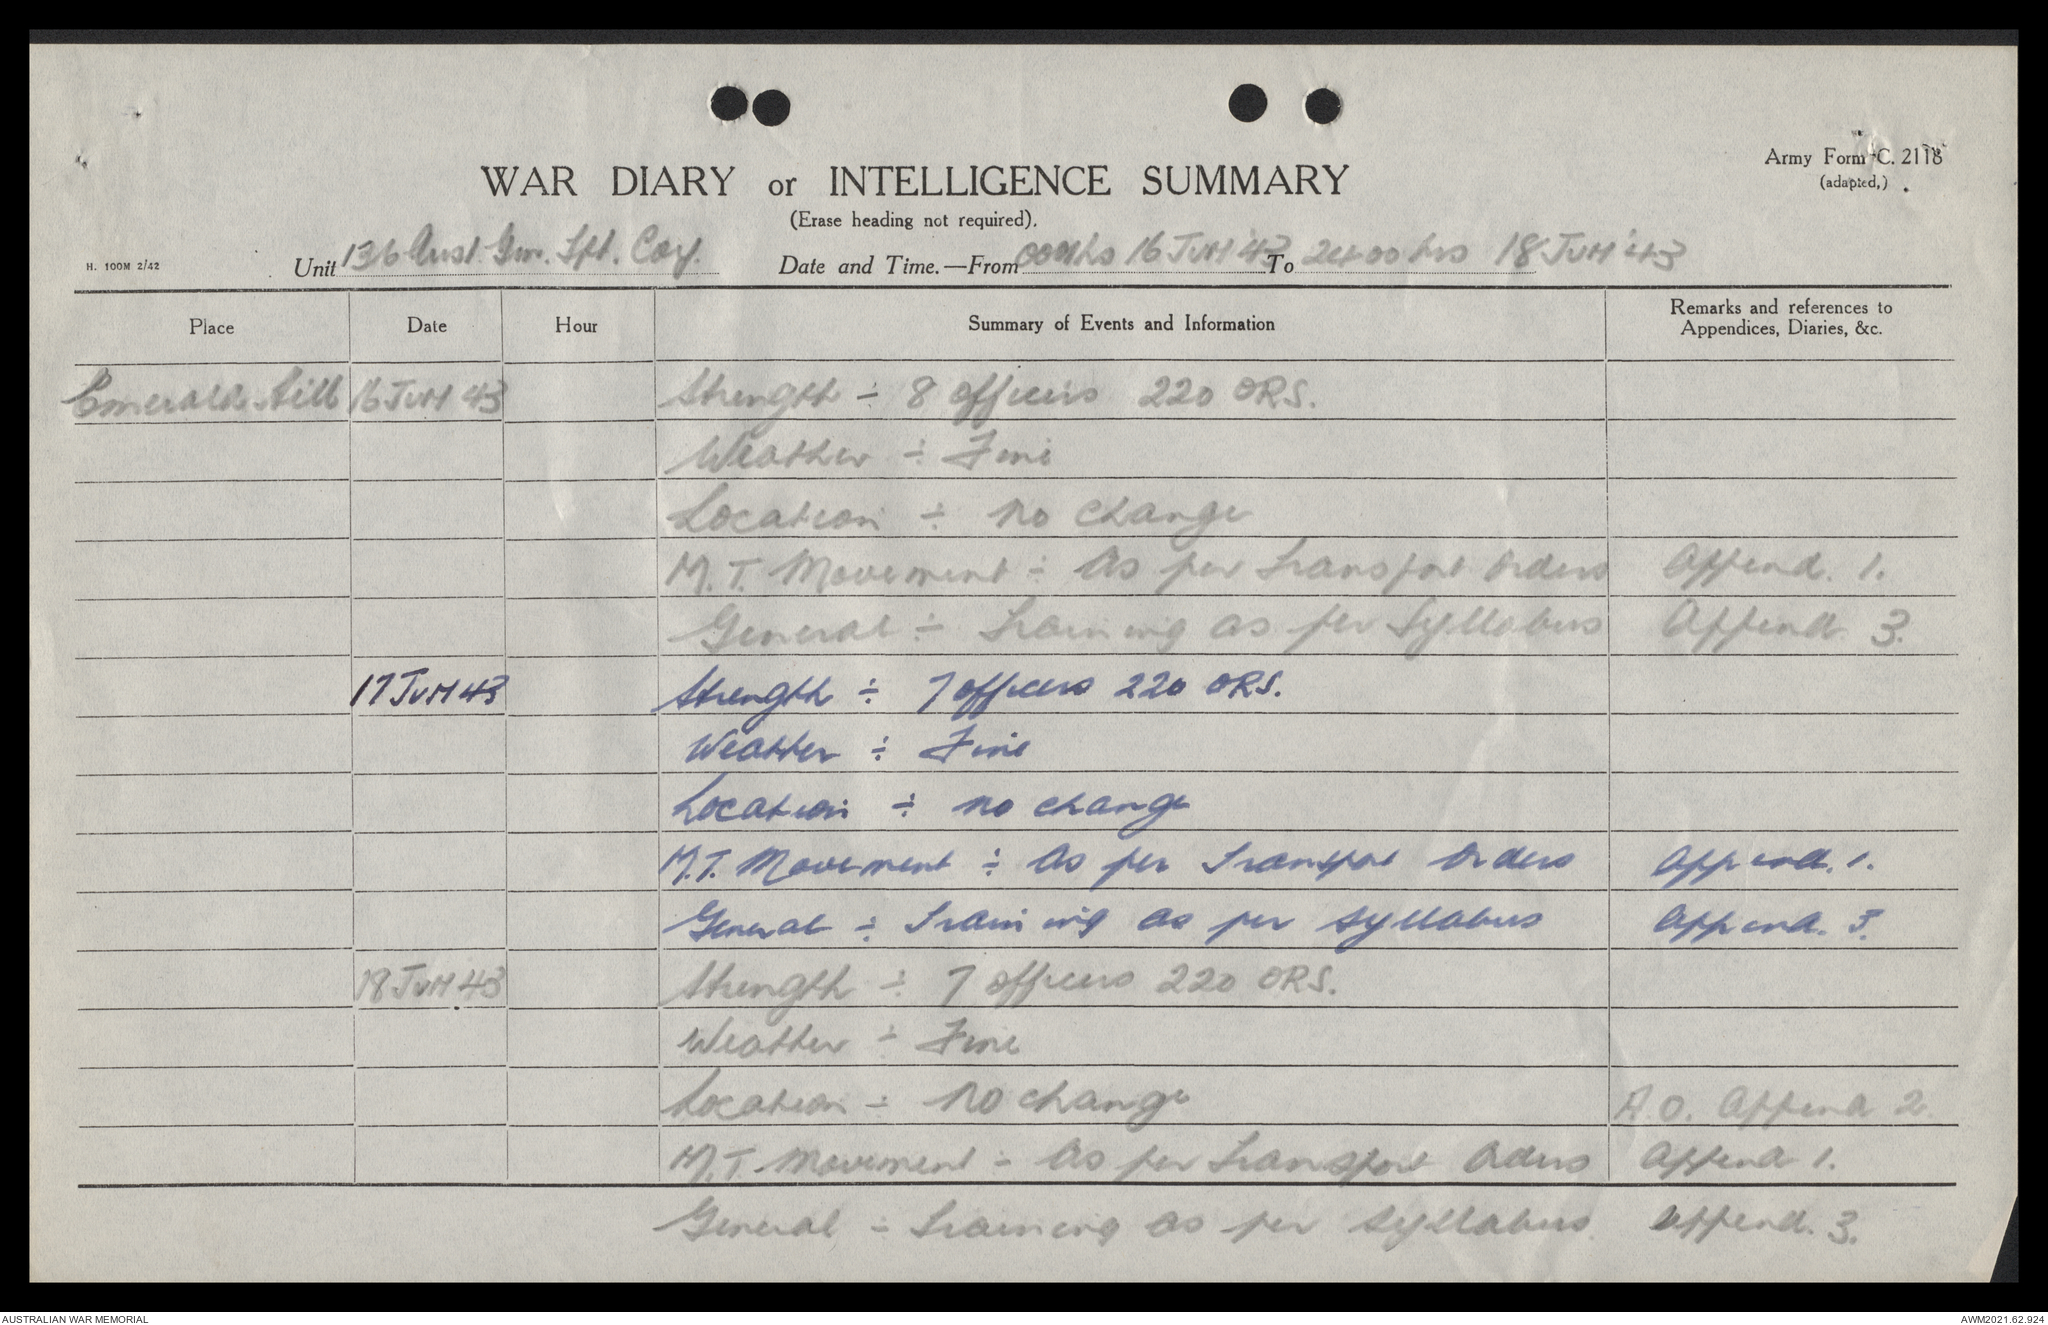 WAR DIARY or INTELLIGENCE SUMMARY
(Erase heading not required).
Army Form C. 2118
(adapted,)
H. 100M 2/42
Unit 136 Aust. Gen. Tpt. Coy.
Date and Time.—From 0001hs 16 JUN '43 To 2400 hrs 18 JUN '43
Place Date Hour Summary of Events and Information Remarks and references to
Appendices, Diaries, &c.
Emerald Hill 16 JUN 43 Strength ÷ 8 officers 220 ORS.
Weather ÷ Fine
Location ÷ no change
M.T. Movement ÷ As per Transport Orders Append. 1.
General ÷ Training as per Syllabus Append 3.
17 JUN 43 Strength ÷ 7 officers 220 ORS.
Weather ÷ Fine
Location ÷ no change
M.T. Movement ÷ As per Transport Orders Append. 1.
General ÷ Training as per syllabus Append. 3.
18 JUN 43 Strength ÷ 7 officers 220 ORS.
Weather ÷ Fine
Location ÷ No change R.O. Append 2
M.T. Movement ÷ As per Transport Orders Append 1.
General ÷ Training as per syllabus. Append. 3.
AUSTRALIAN WAR MEMORIAL
AWM2021.62.924